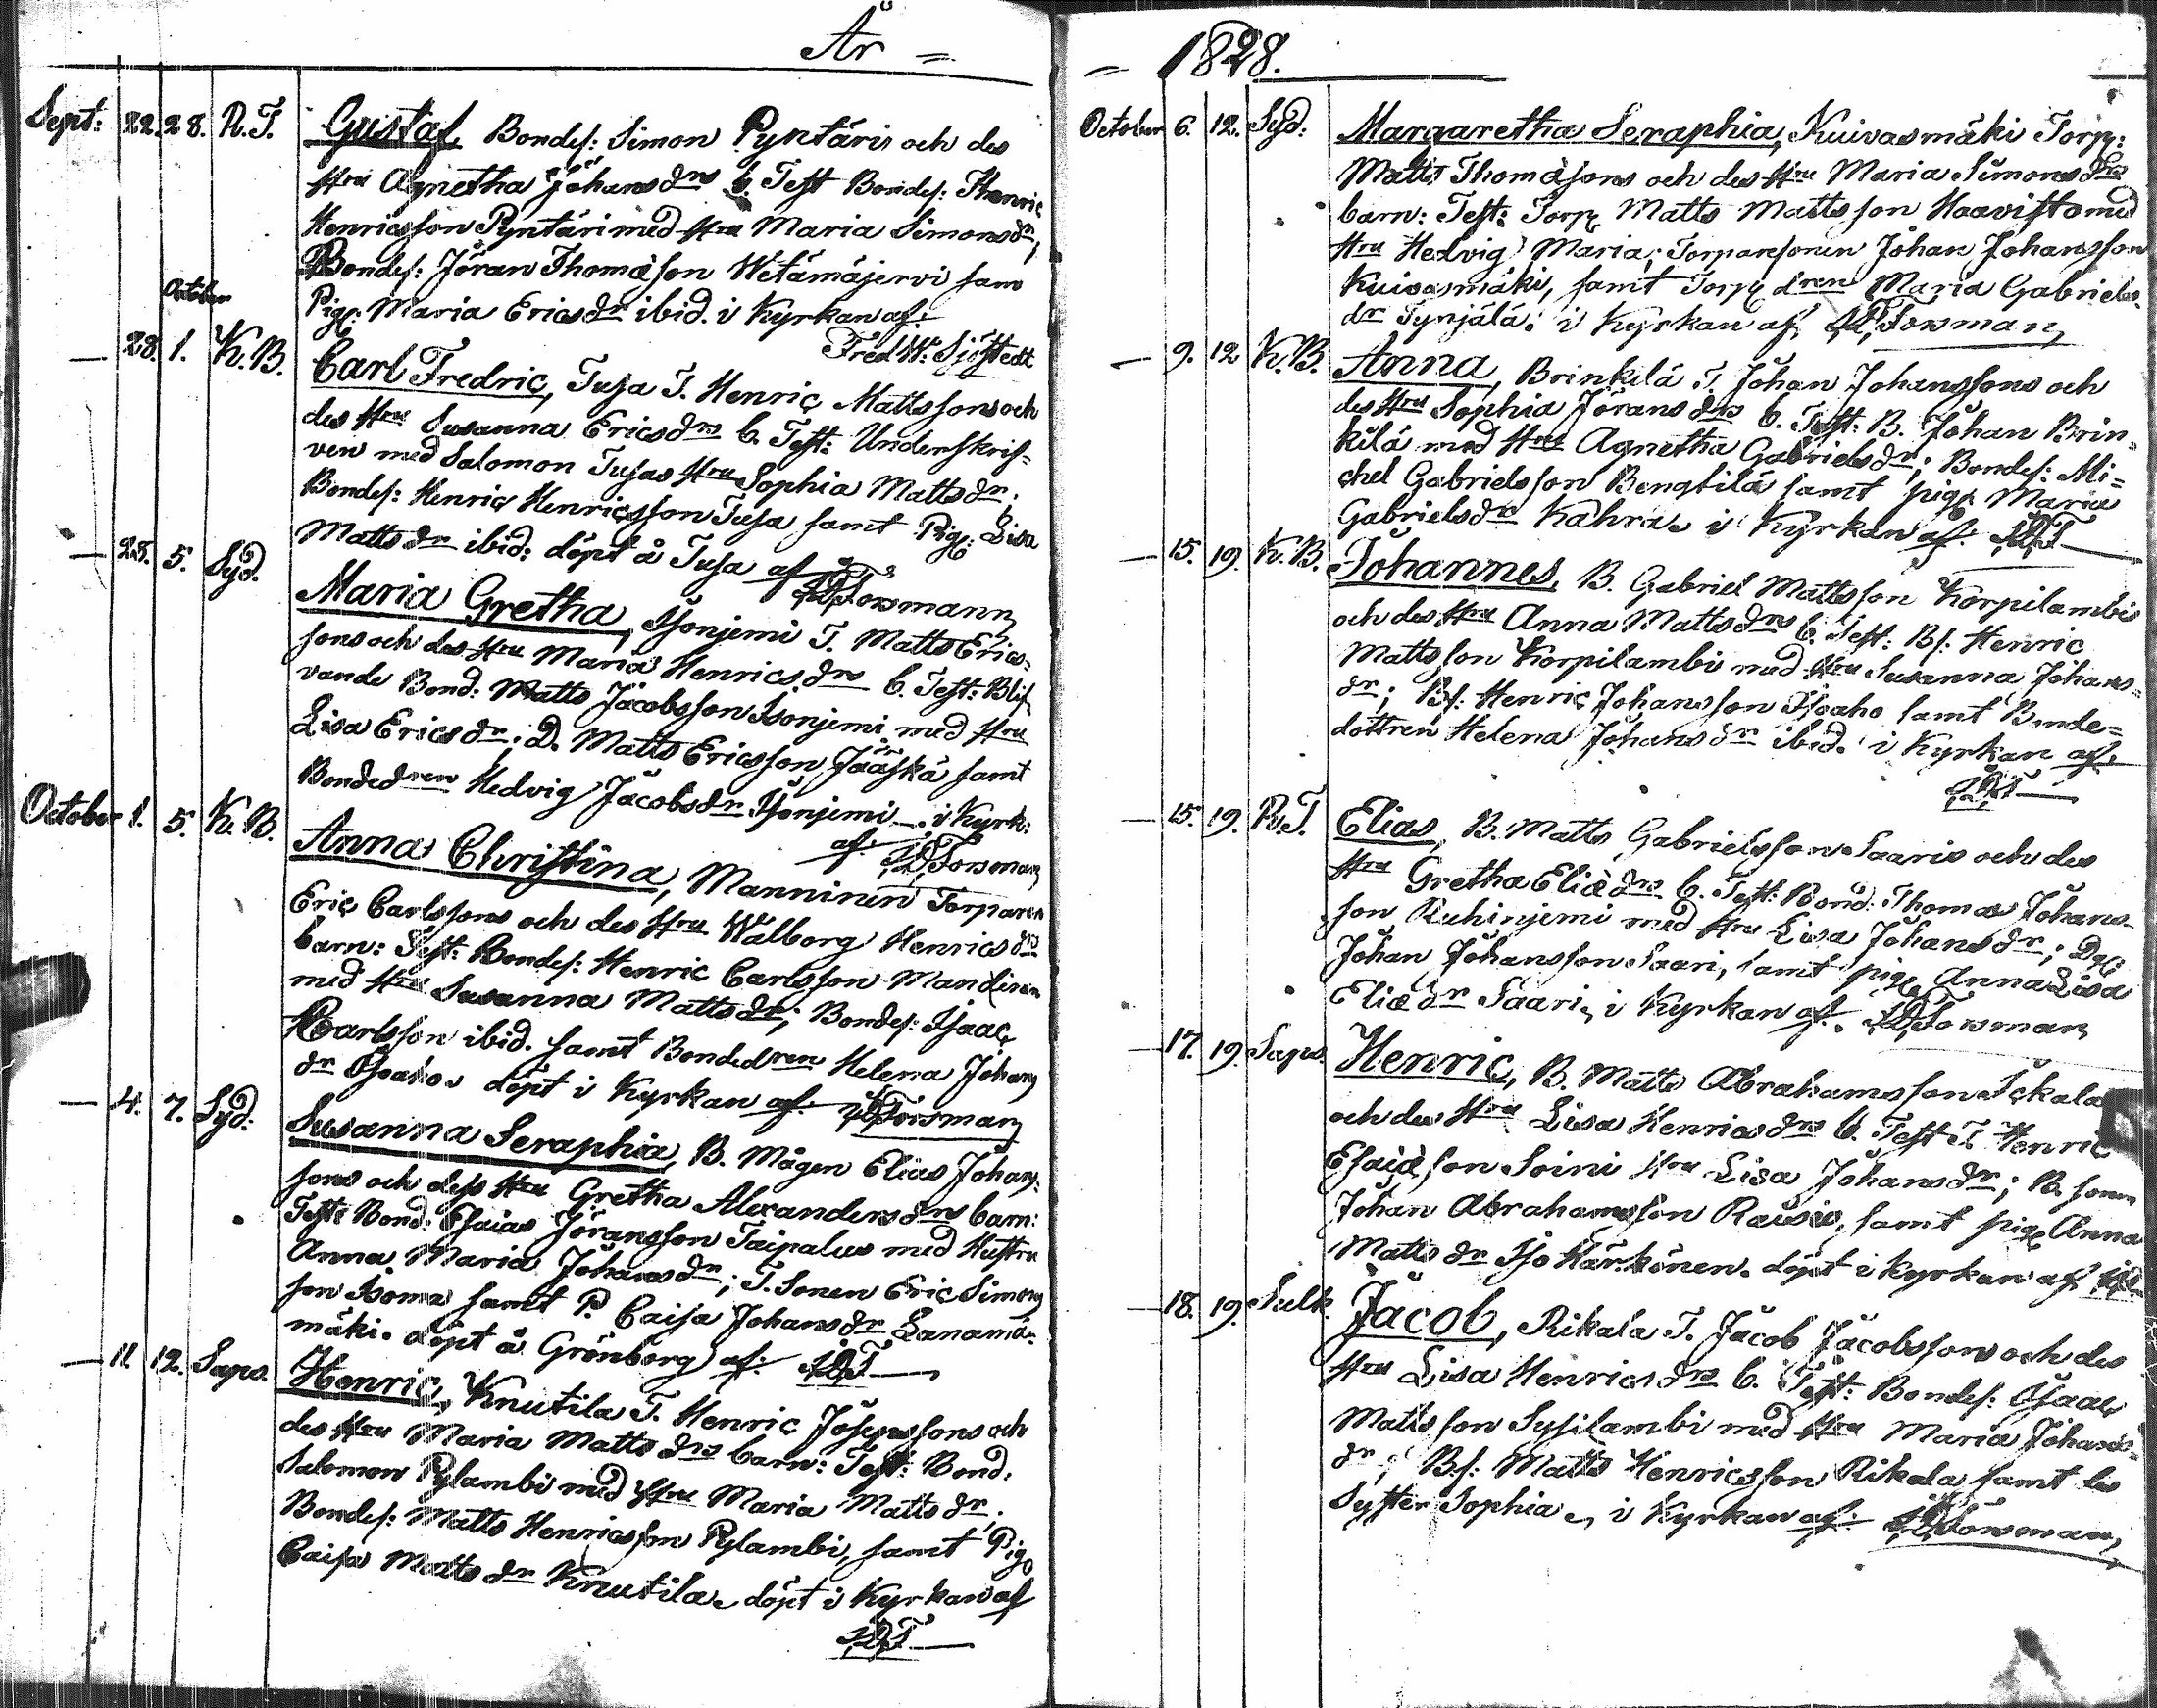 År =
Sept: 22. 28. R.T. Gustaf, Bondes: Simon Pyntäris och des
Hru Agnetha Johansdrs b. Test Bondes: Henric
Henricsson Pyntäri med Hru Maria Simonsdr;
Bondes: Jöran Thomasson Wetämäjervi samt
Pig: Maria Ericsdr ibid. i Kyrkan af:
Fred W. Sjöstedt
October
— 28. 1. K.B. Carl Fredric, Tusa T. Henric Mattssons och
des Hru Susanna Ericsdrs b. Test: Underskrif-
ven med Salomon Tusas Hru Sophia Mattsdr.
Bondes: Henric Henricsson Tusa samt Pig: Lisa
Mattsdr ibid: döpt å Tusa af
Forsmann
— 28. 5. Syd. Maria Gretha, Isonjemi T. Matts Erics-
sons och des Hru Maria Henricsdrs b. Test: Blif-
vande Bond: Matts Jacobsson Isonjemi med Hru
Lisa Ericsdr; D. Matts Ericsson Jääskä samt
Bondedren Hedvig Jacobsdr Isonjemi — i Kyrk:
af: Forsman
October 1. 5. K.B. Anna Christina, Manninen Torparen
Eric Carlssons och des Hru Walborg Henricsdrs
barn: Test: Bondes: Henric Carlsson Manninen
med Hru Susanna Mattsdr; Bondes: Isaac
Carlsson ibid. samt Bondedren Helena Johans
dr Isoaho. döpt i Kyrkan af: Forsman
— 4. 7. Syd: Susanna Seraphia, B. Mågen Elias Johans-
sons och dess Hru Gretha Alexandersdrs barn:
Test: Bond: Esaias Jöransson Taipalus med Hustru
Anna Maria Johansdr; T. Sonen Eric Simons
son Isoma samt P. Caisa Johansdr Lanamä-
mäki. döpt å Grönberg af:
— 11. 12. Sapo. Henric, Knutila T. Henric Josepssons och
des Hru Maria Mattsdrs barn: Test: Bond.
Salomon Pylambi med Hru Maria Mattsdr;
Bondes: Matts Henricsson Pylambi, samt Pig
Caisa Mattsdr Knutila. döpt i Kyrkan af
= 1828.
October 6. 12. Syd: Margaretha Seraphia, Kuivasmäki Torp:
Matts Thomassons och des Hru Maria Simonsdrs
barn: Test: Torp Matts Mattsson Haavisto med
Hru Hedvig Maria; Torparesonen Johan Johansson
Kuivasmäki, samt Torp dren Maria Gabriels-
dr Tynjälä. i Kyrkan af Forsman
— 9. 12 K.B. Anna, Brinkilä T. Johan Johanssons och
des Hru Sophia Jöransdrs b. Test: B. Johan Brin-
kilä med Hru Agnetha Gabrielsdr; Bondes: Mi-
chel Gabrielsson Bengtilä samt pig: Maria
Gabrielsdr Kahra. i Kyrkan af:
— 15. 19. K.B. Johannes, B. Gabriel Mattsson Korpilambis
och des Hru Anna Mattsdrs b. Test: Bs: Henric
Mattsson Korpilambi med Hru Susanna Johans-
dr; Bs: Henric Johansson Isoaho samt Bonde-
dottren Helena Johansdr ibid. i Kyrkan af.
— 15. 19. R.T. Elias, B. Matts Gabrielsson Saaris och des
Hru Gretha Eliædrs b. Test: Bond: Thomas Johans-
son Ruhinjemi med Hru Lisa Johansdr;
Johan Johansson Saari, samt pig: Anna Lisa
Eliædr Saari, i Kyrkan af. Forsman
— 17. 19. Sapo. Henric, B. Matts Abrahamsson Ickala
och des Hru Lisa Henricsdrs b. Test T. Henric
Esaiæson Soini Hru Lisa Johansdr; B. sonen
Johan Abrahamsson Rausio, samt pig: Anna
Mattsdr Iso Härkönen. döpt i Kyrkan af
— 18. 19. Sulk. Jacob, Rikala T. Jacob Jacobssons och des
Hru Lisa Henricsdrs b. Test: Bondes: Isaac
Mattsson Sysilambi med Hru Maria Johans-
dr; Bs: Matts Henricsson Rikala samt des
Syster Sophia. i Kyrkan af: Forsman